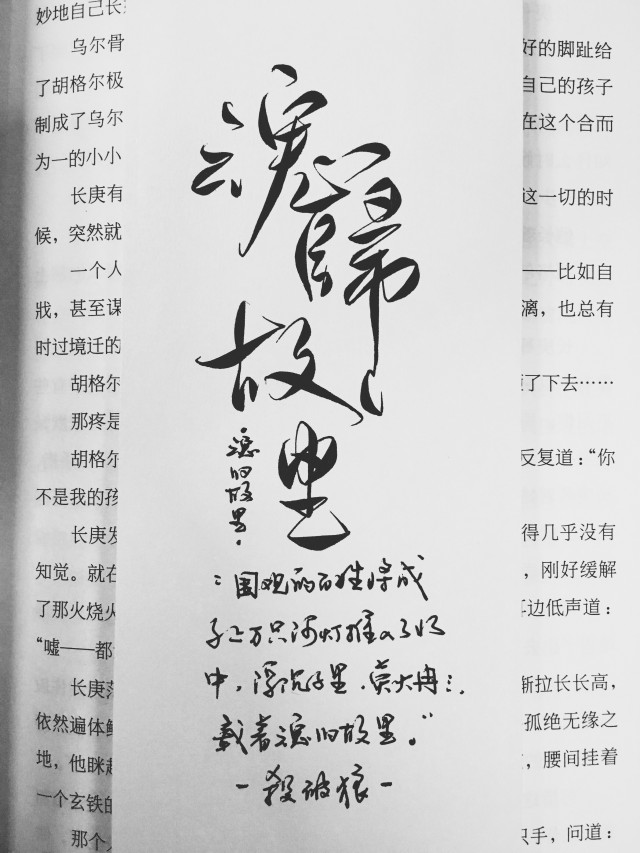 妙地自己长
乌尔骨
了胡格尔极
制成了乌尔
为一的小小
长庚有
候，突然就
一个人
戕，甚至谋
时过境迁的
胡格尔
那疼是
胡格尔
不是我的孩
长庚发
知觉。就在
了那火烧火
“嘘——都
长庚荡
依然遍体鲜
地，他眯起
一个玄铁的
那个
魂歸
故里
魂归故里。
围观的百姓将成
千上万只河灯推入了水
中，浮沉千里，莫大冉冉，
载着魂归故里。”
－殺破狼－
好的脚趾给
自己的孩子
在这个合而
这一切的时
——比如自
漓，也总有
了下去……
反复道：“你
得几乎没有
，刚好缓解
耳边低声道：
渐拉长长高，
孤绝无缘之
，腰间挂着
只手，问道：